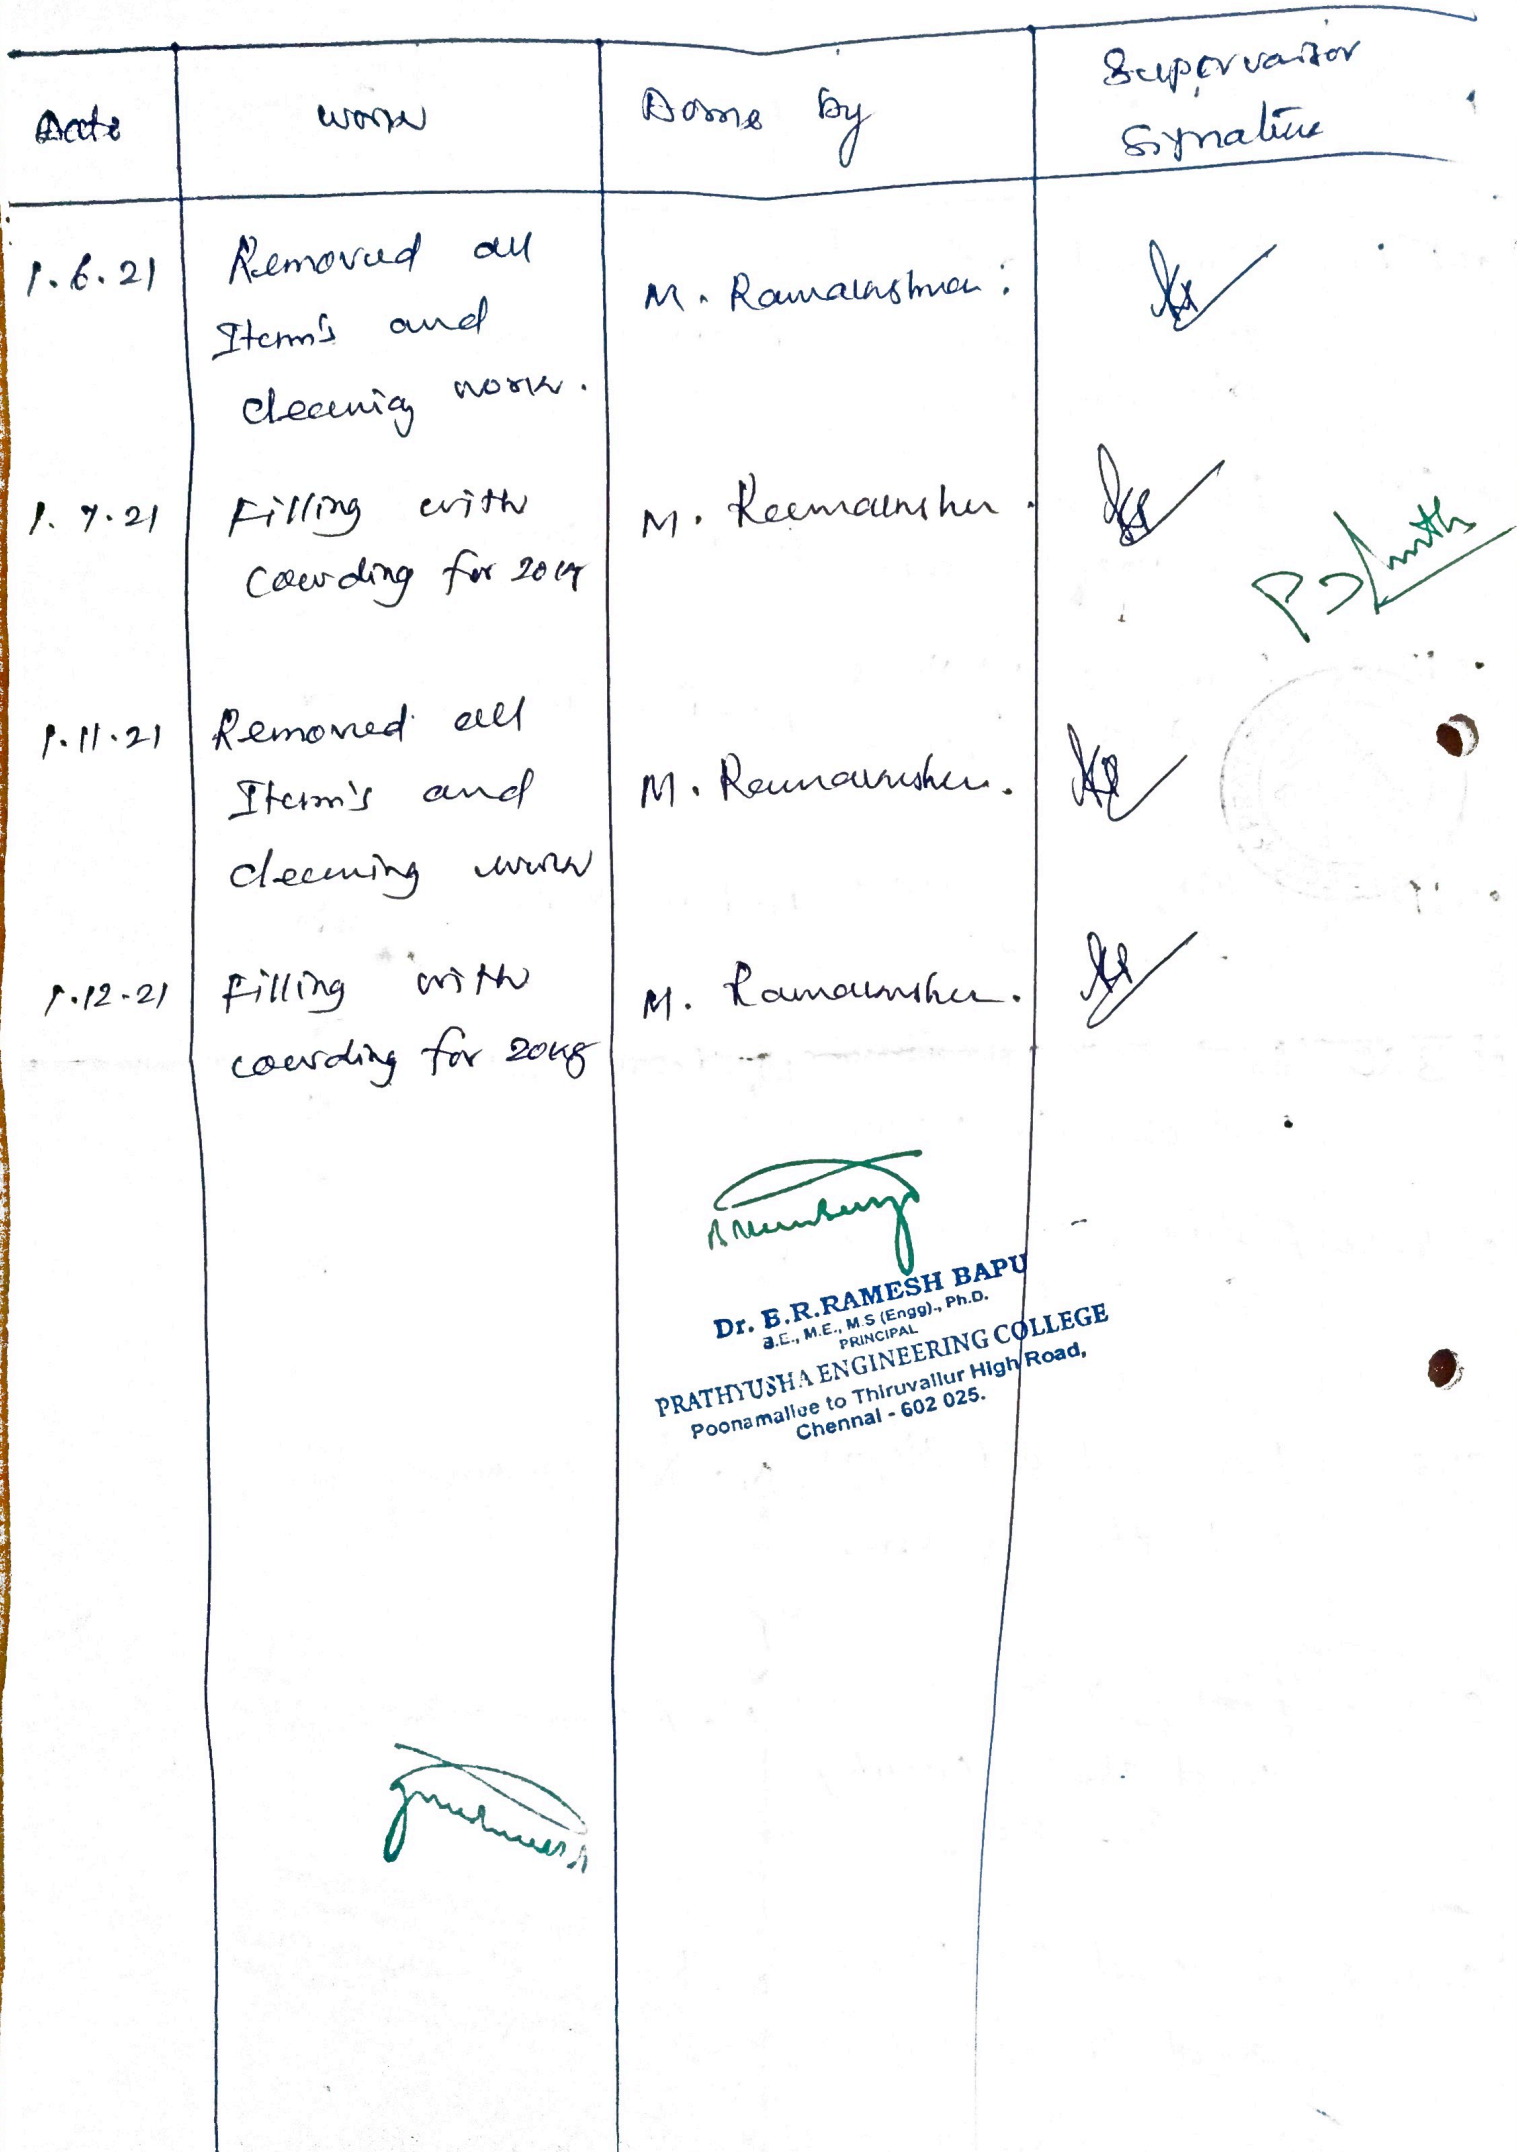 Date work Done by Supervaisor
Signature
1.6.21 Removed all
Item's and M.
cleaning work.
1.7.21 Filling with M.
Cowding for 20kg
1.11.21 Removed all
Item's and M.
cleaning work
1.12.21 Filling with M.
cowding for 20kg
Dr. B.R.RAMESH BAPU
B.E., M.E., M.S (Engg)., Ph.D.
PRINCIPAL
PRATHYUSHA ENGINEERING COLLEGE
Poonamallee to Thiruvallur High Road,
Chennai - 602 025.